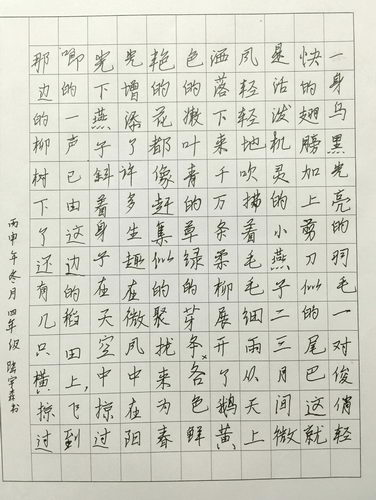 一身乌黑光亮的羽毛一对俊俏轻
快的翅膀加上剪刀似的尾巴这就
是活泼机灵的小燕子二三月间微
风轻轻地吹拂着毛毛细雨从天上
洒落下来千万条柔柳展开了鹅黄
色的嫩叶青的草绿的芽各色鲜
艳的花都像赶集似的聚拢来为春
光增添了许多生趣在微风中在阳
光下燕子斜着身子在天空中掠过
唧的一声已由这边的稻田上,飞到
那边的柳树下了还有几只横掠过
丙申年冬月 四年级 书